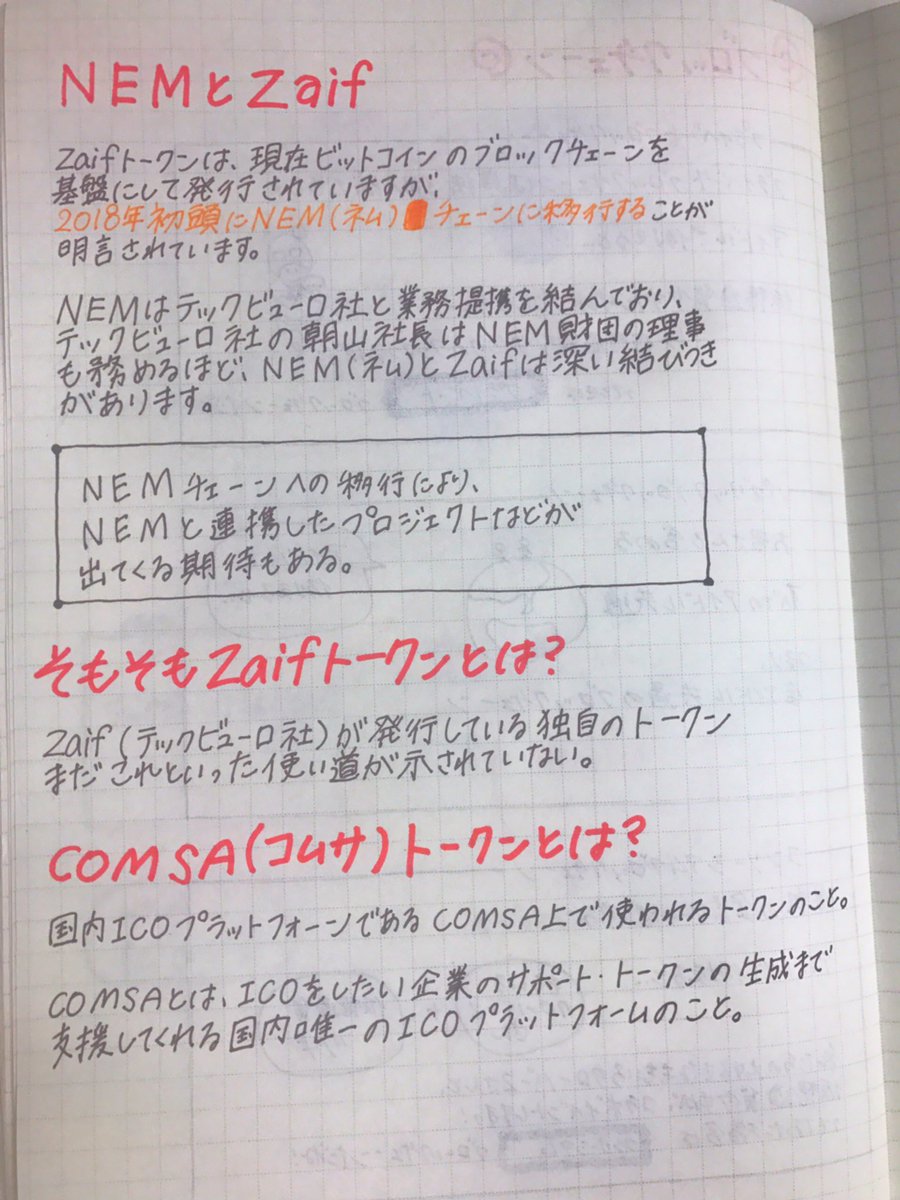 NEMとZaif
Zaifトークンは、現在ビットコインのブロックチェーンを
基盤にして発行されていますが、
2018年初頭にNEM(ネム)チェーンに移行することが
明言されています。
NEMはテックビューロ社と業務提携を結んでおり、
テックビューロ社の朝山社長はNEM財団の理事
も務めるほど、NEM(ネム)とZaifは深い結びつき
があります。
NEMチェーンへの移行により、
NEMと連携したプロジェクトなどが
出てくる期待もある。
そもそもZaifトークンとは?
Zaif(テックビューロ社)が発行している独自のトークン
まだこれといった使い道が示されていない。
COMSA(コムサ)トークンとは?
国内ICOプラットフォーンであるCOMSA上で使われるトークンのこと。
COMSAとは、ICOをしたい企業のサポート・トークンの生成まで
支援してくれる国内唯一のICOプラットフォームのこと。